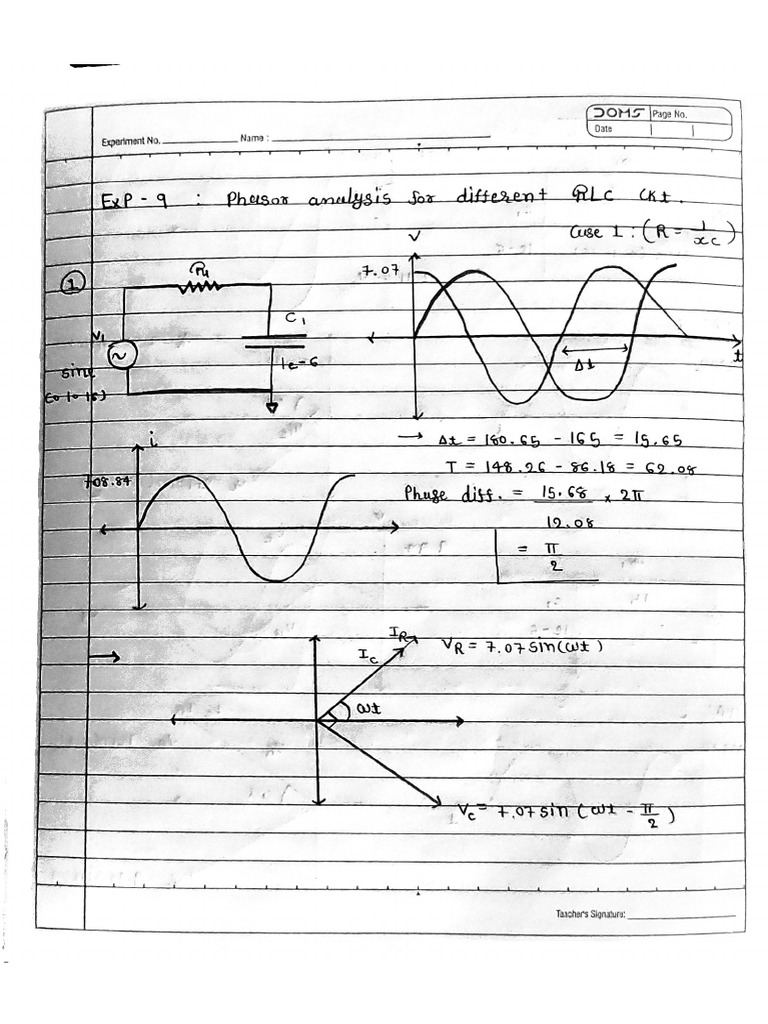 DOMS Page No.
Date
Experiment No. Name :
EXP - 9 : Phasor analysis for different RLC Ckt.
Case 1 : (R = 1/xc)
1
R4
V1
C1
1e-6
sine
(0 10 1k)
V
7.07
Δt
t
→ Δt = 180.65 - 165 = 15.65
T = 148.26 - 86.18 = 62.08
Phase diff. = 15.68/12.08 x 2π
= π/2
i
708.84
IR
IC
VR = 7.07 sin(ωt)
ωt
Vc = 7.07 sin (ωt - π/2)
Teacher's Signature: